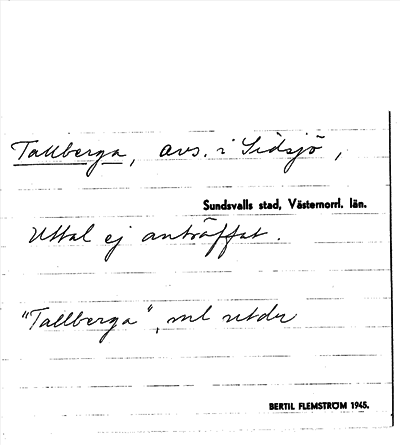 Tallberga, avs. i Sidsjö,
Sundsvalls stad, Västernorrl. län.
Uttal ej anträffat.
"Tallberga", ml utdr
BERTIL FLEMSTRÖM 1945.